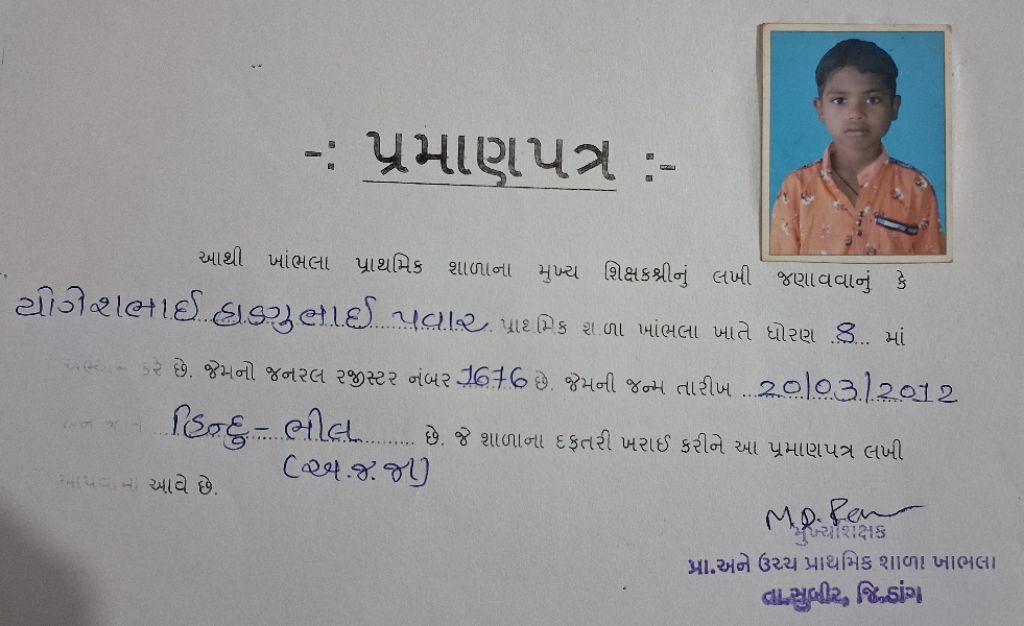 -: પ્રમાણપત્ર :-
આથી ખાંભલા પ્રાથમિક શાળાના મુખ્ય શિક્ષકશ્રીનું લખી જણાવવાનું કે
યોગેશભાઈ હાડગુભાઈ પવાર પ્રાથમિક શાળા ખાંભલા ખાતે ધોરણ 8 માં
અભ્યાસ કરે છે. જેમનો જનરલ રજીસ્ટર નંબર 1676 છે. જેમની જન્મ તારીખ 20/03/2012
અને જાતે હિન્દુ - ભીલ છે. જે શાળાના દફતરી ખરાઈ કરીને આ પ્રમાણપત્ર લખી
(અ.જ.જા)
આપવામાં આવે છે.
M.D.
મુખ્યશિક્ષક
પ્રા.અને ઉચ્ચ પ્રાથમિક શાળા ખાંભલા
તા.સુબીર, જિ.ડાંગ